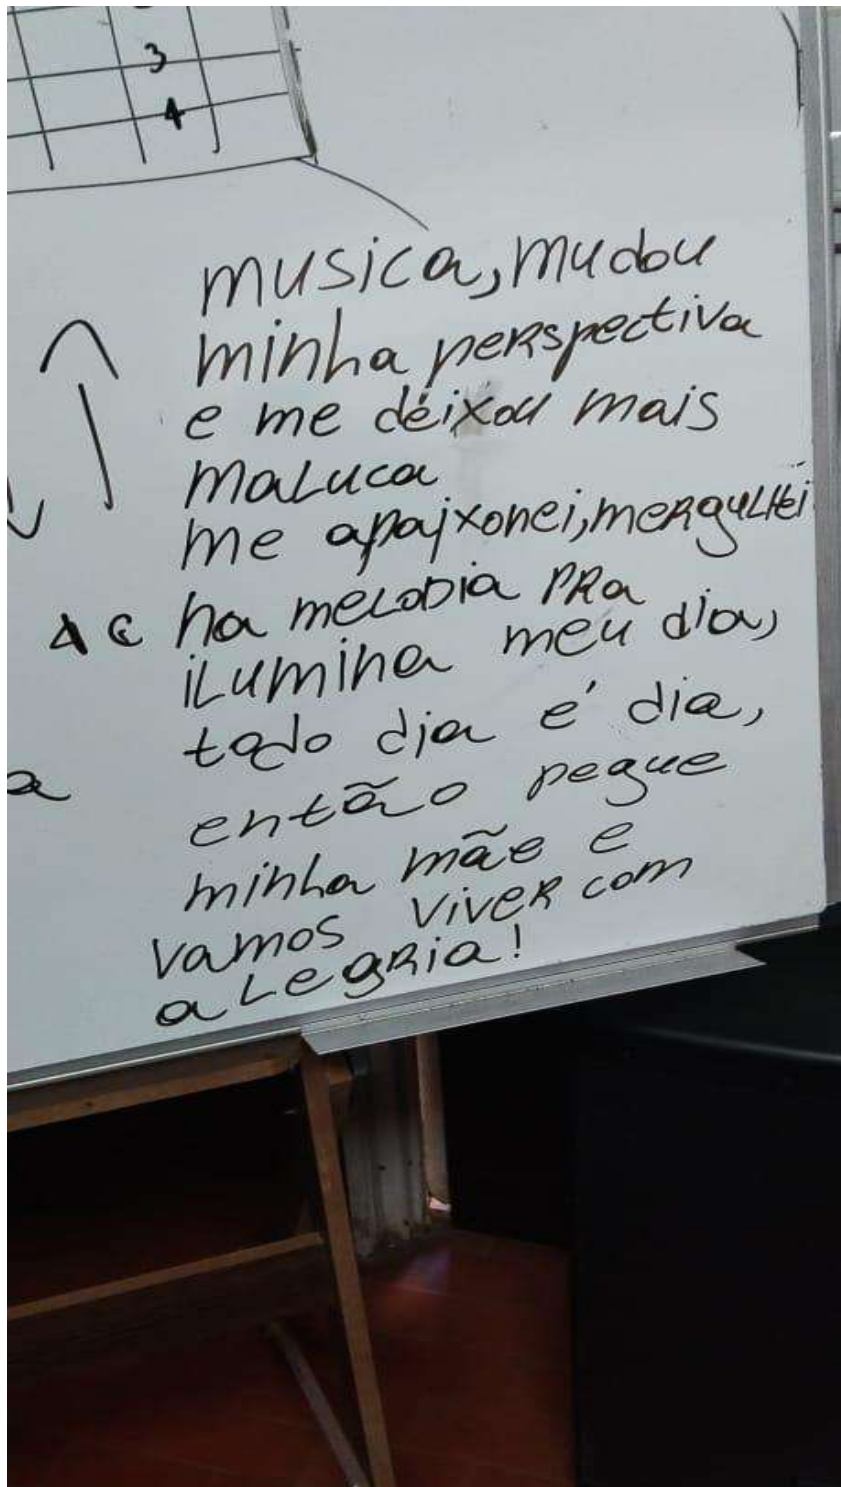 3
4
musica, mudou
minha perspectiva
e me deixou mais
maluca
me apaixonei, mergulhei
na melodia pra
ilumina meu dia,
todo dia é dia,
então pegue
minha mãe e
vamos viver com
alegria!
a